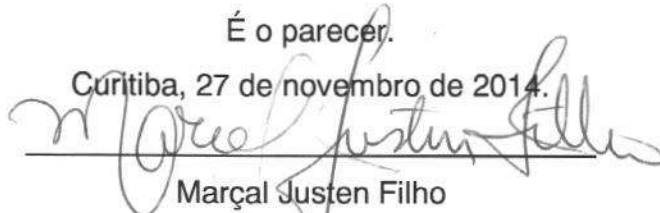 É o parecer.
Curitiba, 27 de novembro de 2014.
Marçal Justen Filho
Marçal Justen Filho